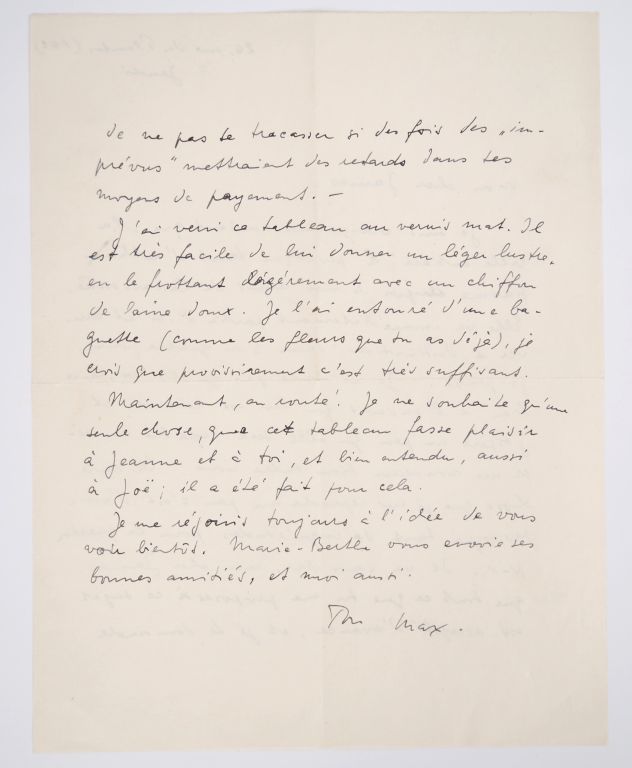 de ne pas te tracasser si des fois des „im-
prévus" mettraient des retards dans tes
moyens de payement. —
J'ai verni ce tableau au vernis mat. Il
est très facile de lui donner un léger lustre,
en le frottant légèrement avec un chiffon
de laine doux. Je l'ai entouré d'une ba-
guette (comme les fleurs que tu as déjà), je
crois que provisoirement c'est très suffisant.
Maintenant, en route! Je ne souhaite qu'une
seule chose, que cet tableau fasse plaisir
à Jeanne et à toi, et bien entendu, aussi
à Joë; il a été fait pour cela.
Je me réjouis toujours à l'idée de vous
voir bientôt. Marie-Berthe vous envoie ses
bonnes amitiés, et moi aussi.
Ton Max.